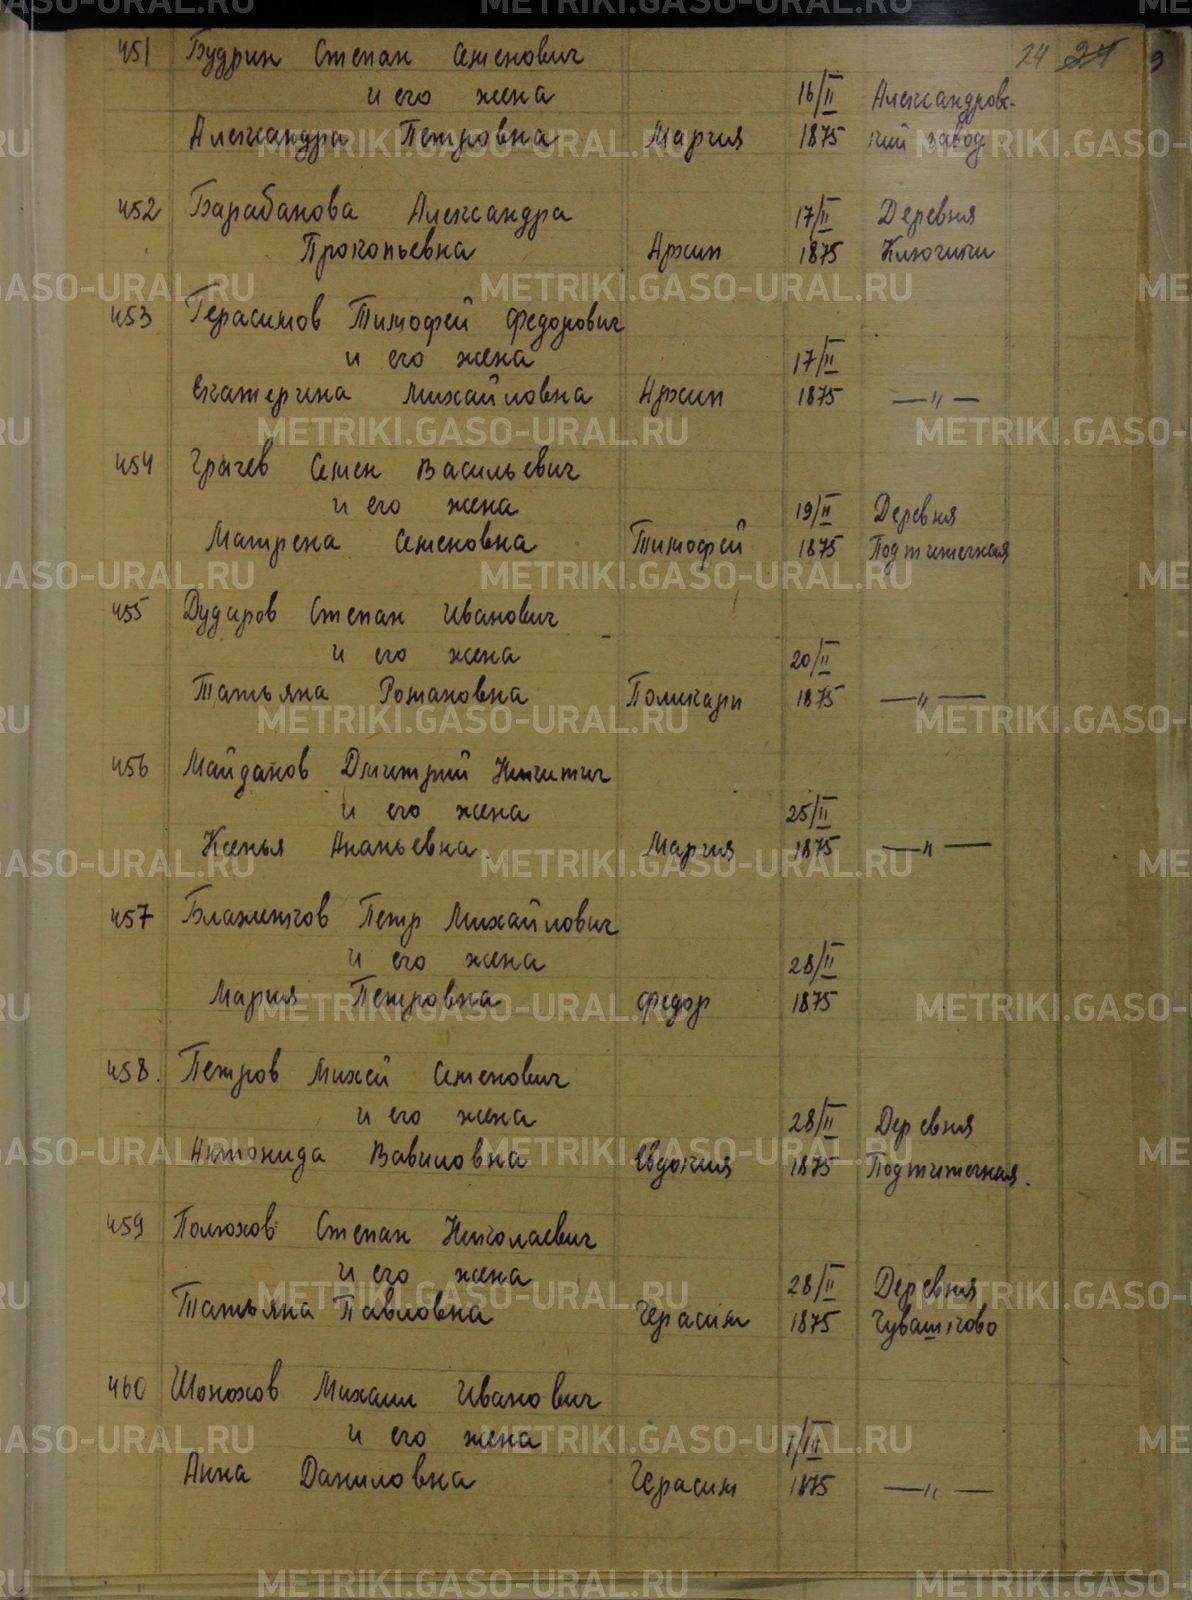 24 21
451 Будрин Степан Семенович
и его жена 16/II Александровс-
Александра Петровна Мария 1875 кий завод
452 Барабанова Александра 17/II Деревня
Прокопьевна Архип 1875 Ключики
453 Герасимов Тимофей Федорович
и его жена 17/II
Екатерина Михайловна Архип 1875 —"—
454 Грачев Семен Васильевич
и его жена 19/II Деревня
Матрена Семеновна Тимофей 1875 Подтитечная
455 Дударов Степан Иванович
и его жена 20/II
Татьяна Романовна Поликарп 1875 —"—
456 Майданов Дмитрий Никитич
и его жена 25/II
Ксенья Ананьевна Мария 1875 —"—
457 Блаженков Петр Михайлович
и его жена 28/II
Мария Петровна Федор 1875
458. Петров Михей Семенович
и его жена 28/II Деревня
Антонида Вавиловна Евдокия 1875 Подтитечная.
459 Полюхов Степан Николаевич
и его жена 28/II Деревня
Татьяна Павловна Герасим 1875 Чувашково
460 Шонохов Михаил Иванович
и его жена 1/III
Анна Даниловна Герасим 1875 —"—
METRIKI.GASO-URAL.RU